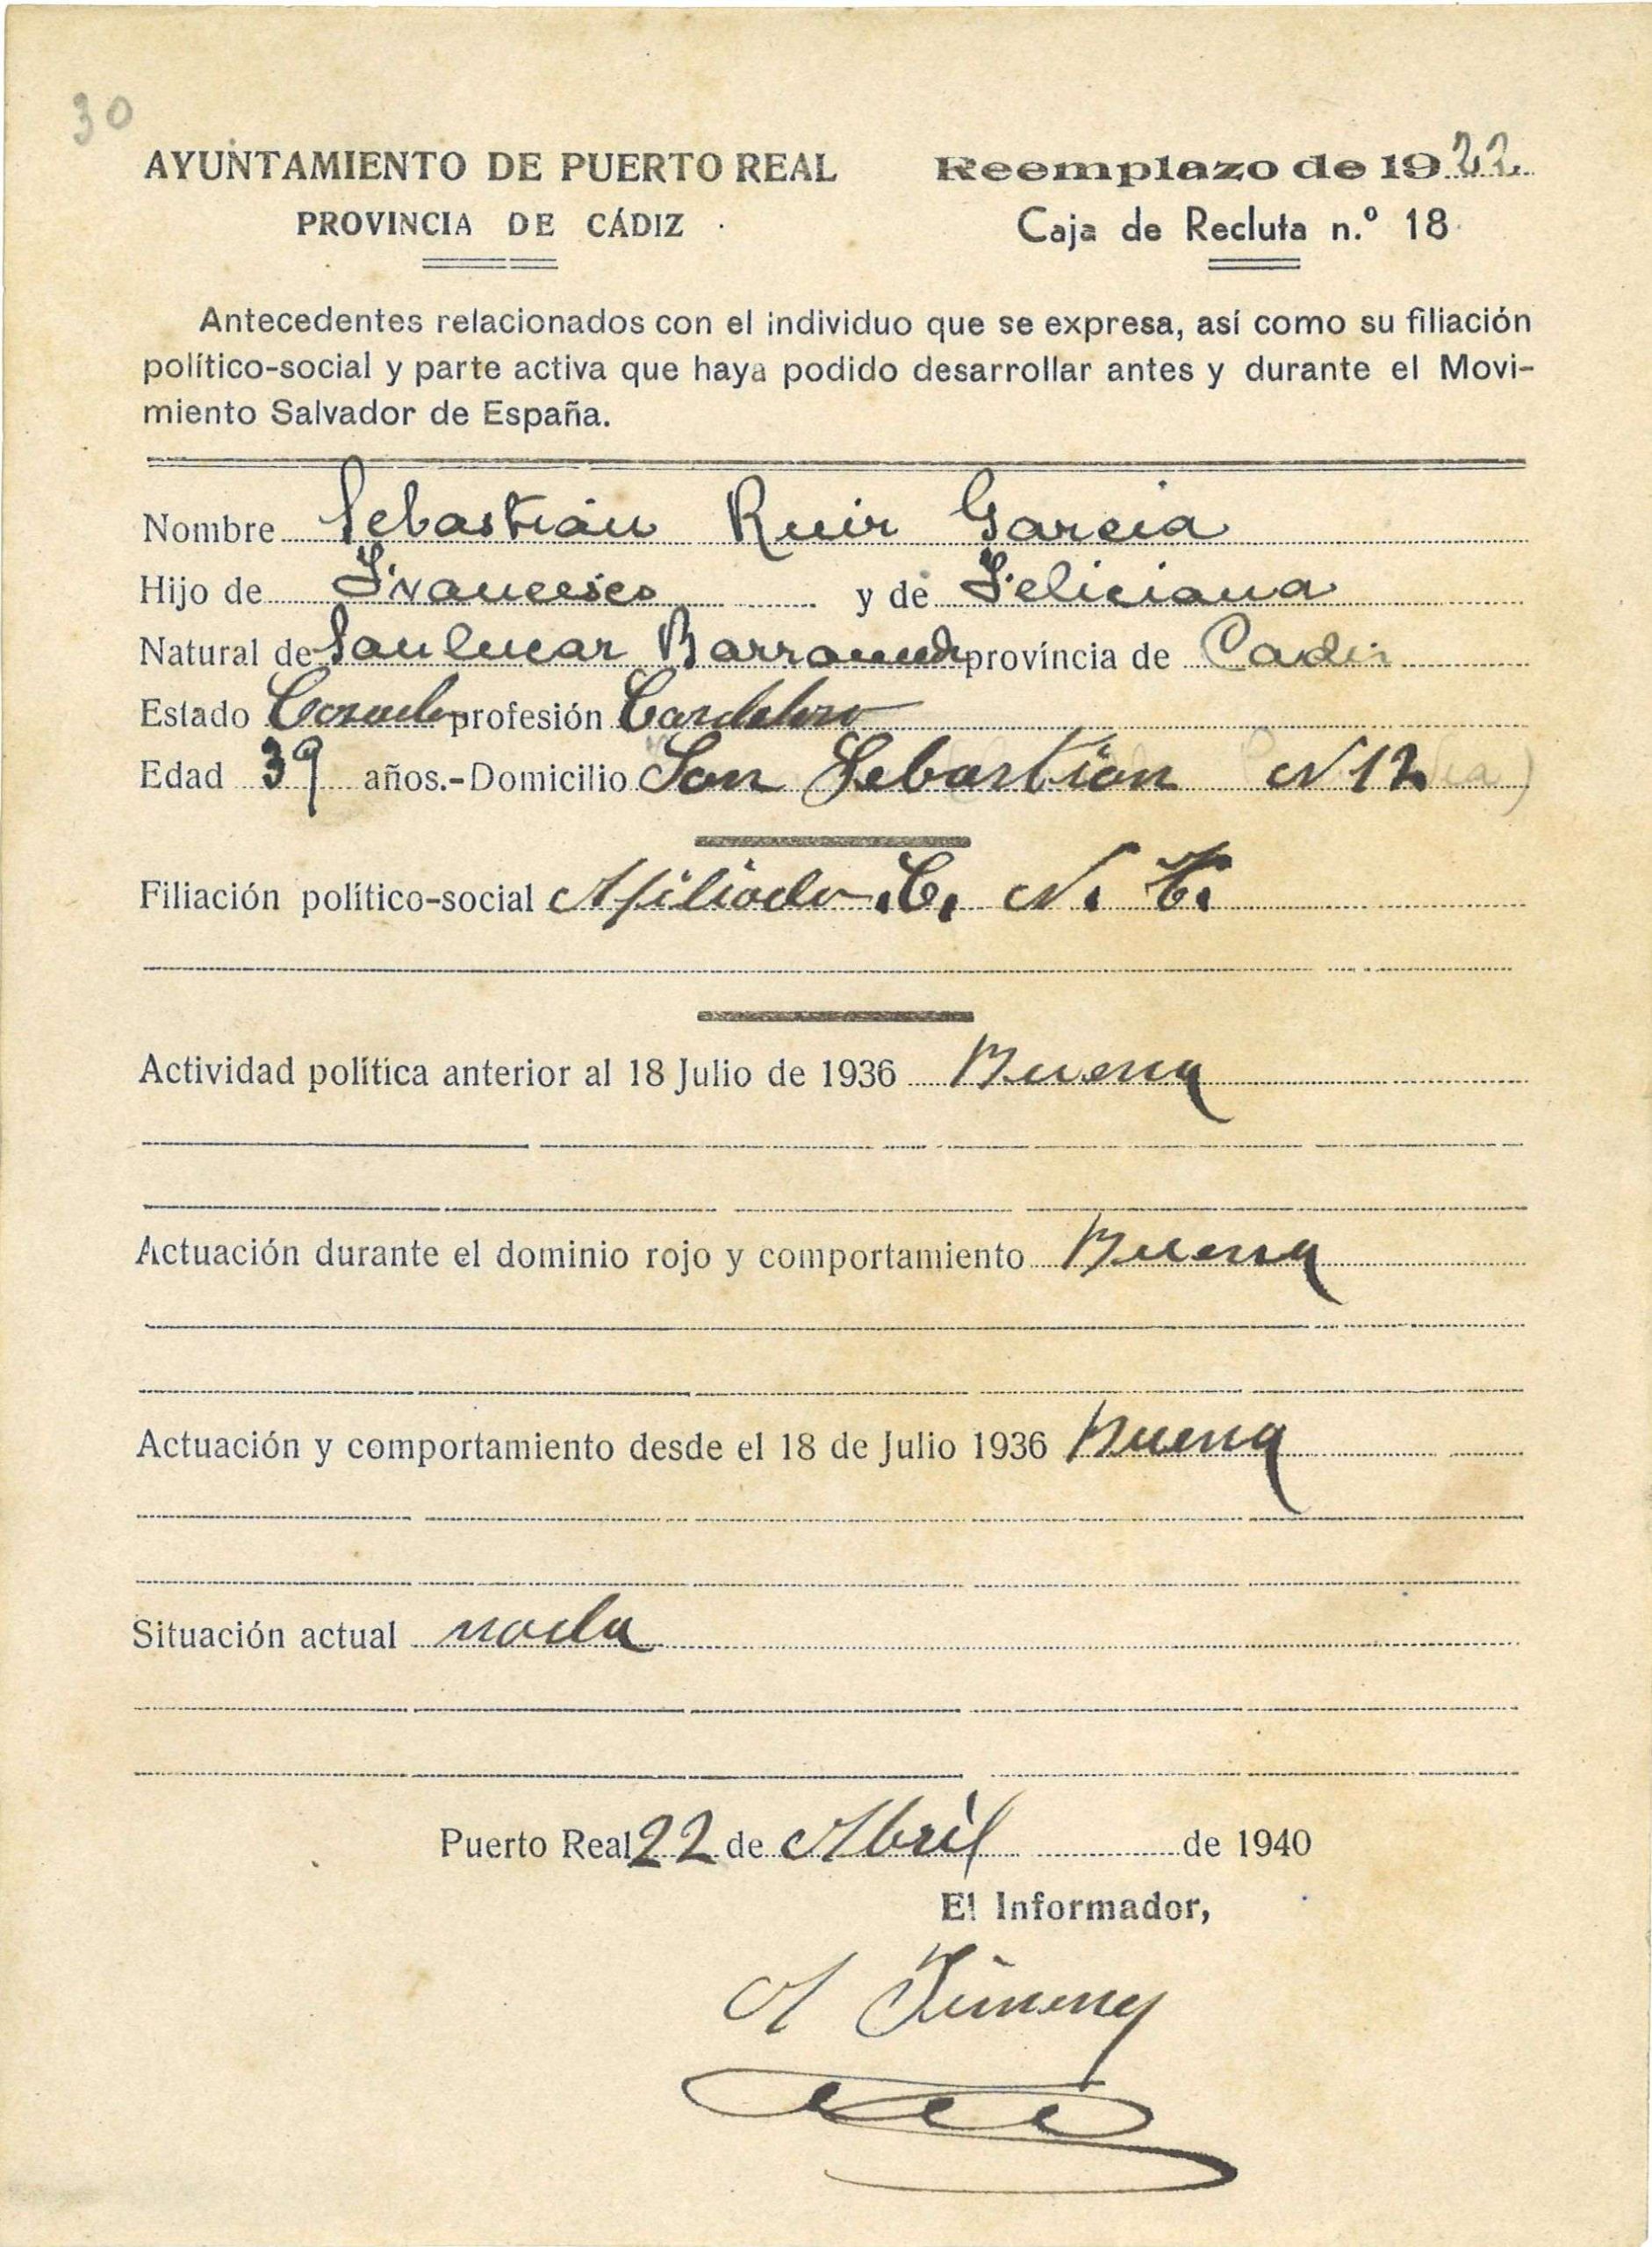 30
AYUNTAMIENTO DE PUERTO REAL
PROVINCIA DE CÁDIZ
Reemplazo de 1922
Caja de Recluta n.º 18
Antecedentes relacionados con el individuo que se expresa, así como su filiación
político-social y parte activa que haya podido desarrollar antes y durante el Movi-
miento Salvador de España.
Nombre Sebastián Ruiz Garcia
Hijo de Francisco y de Feliciana
Natural de Sanlucar Barrameda provincia de Cadiz
Estado Casado profesión Cardelero
Edad 39 años.-Domicilio San Sebastian N 12
Filiación político-social Afiliado C. N. T.
Actividad política anterior al 18 Julio de 1936 Buena
Actuación durante el dominio rojo y comportamiento Buena
Actuación y comportamiento desde el 18 de Julio 1936 Buena
Situación actual nada
Puerto Real 22 de Abril de 1940
El Informador,
A Jimenez